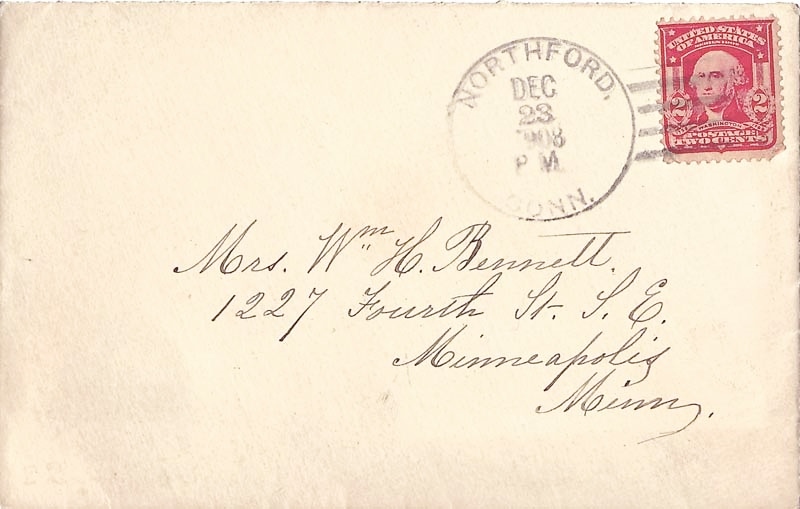 NORTHFORD,
DEC
23
1908
P.M.
CONN.
UNITED STATES
OF AMERICA
2 2
WASHINGTON
POSTAGE
TWO CENTS
Mrs. Wm H. Bennett.
1227 Fourth St. S. E.
Minneapolis
Minn.